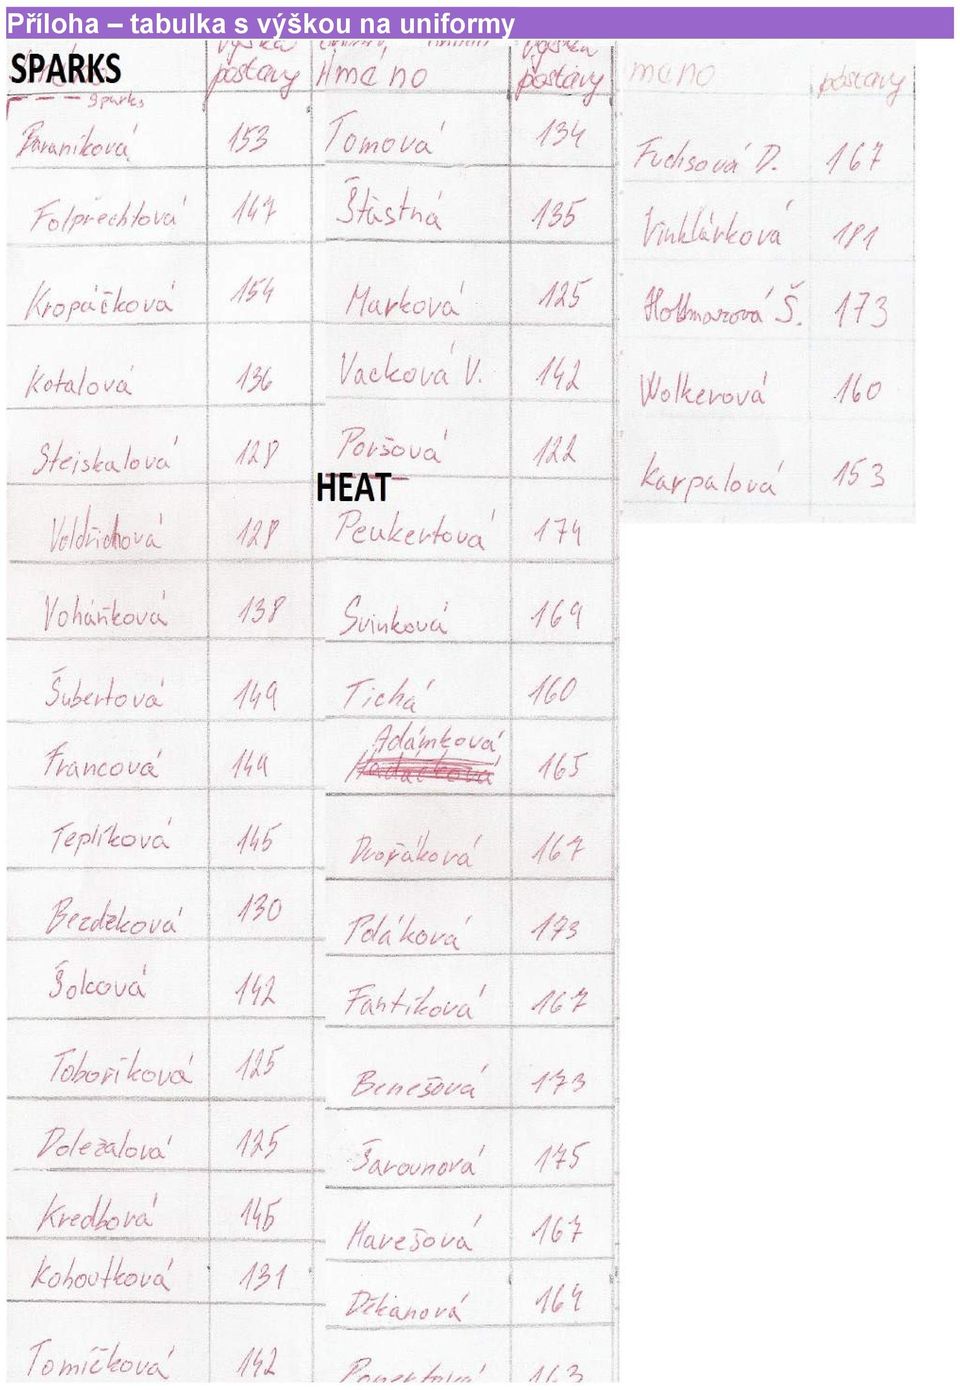 Příloha – tabulka s výškou na uniformy
SPARKS
postavy
Sparks
Baraníková 153
Folprechtová 147
Kropáčková 154
Kotalová 136
Stejskalová 128
Voldřichová 128
Voháňková 138
Šubertová 149
Francová 149
Teplíková 145
Bezděková 130
Šolcová 142
Toboříková 125
Doležalová 125
Kredbová 145
Kohoutková 131
Tomíčková 142
Jméno postavy
Tomová 134
Šťastná 135
Marková 125
Vacková V. 142
Poršová 122
HEAT
Peukertová 174
Svinková 169
Tichá 160
Adámková 165
Dvořáková 167
Poláková 173
Fantíková 167
Benešová 173
Šarounová 175
Marešová 167
Děkanová 164
163
méno postavy
Fuchsová D. 167
Vinklárková 181
Š. 173
Wolkerová 160
Karpalová 153